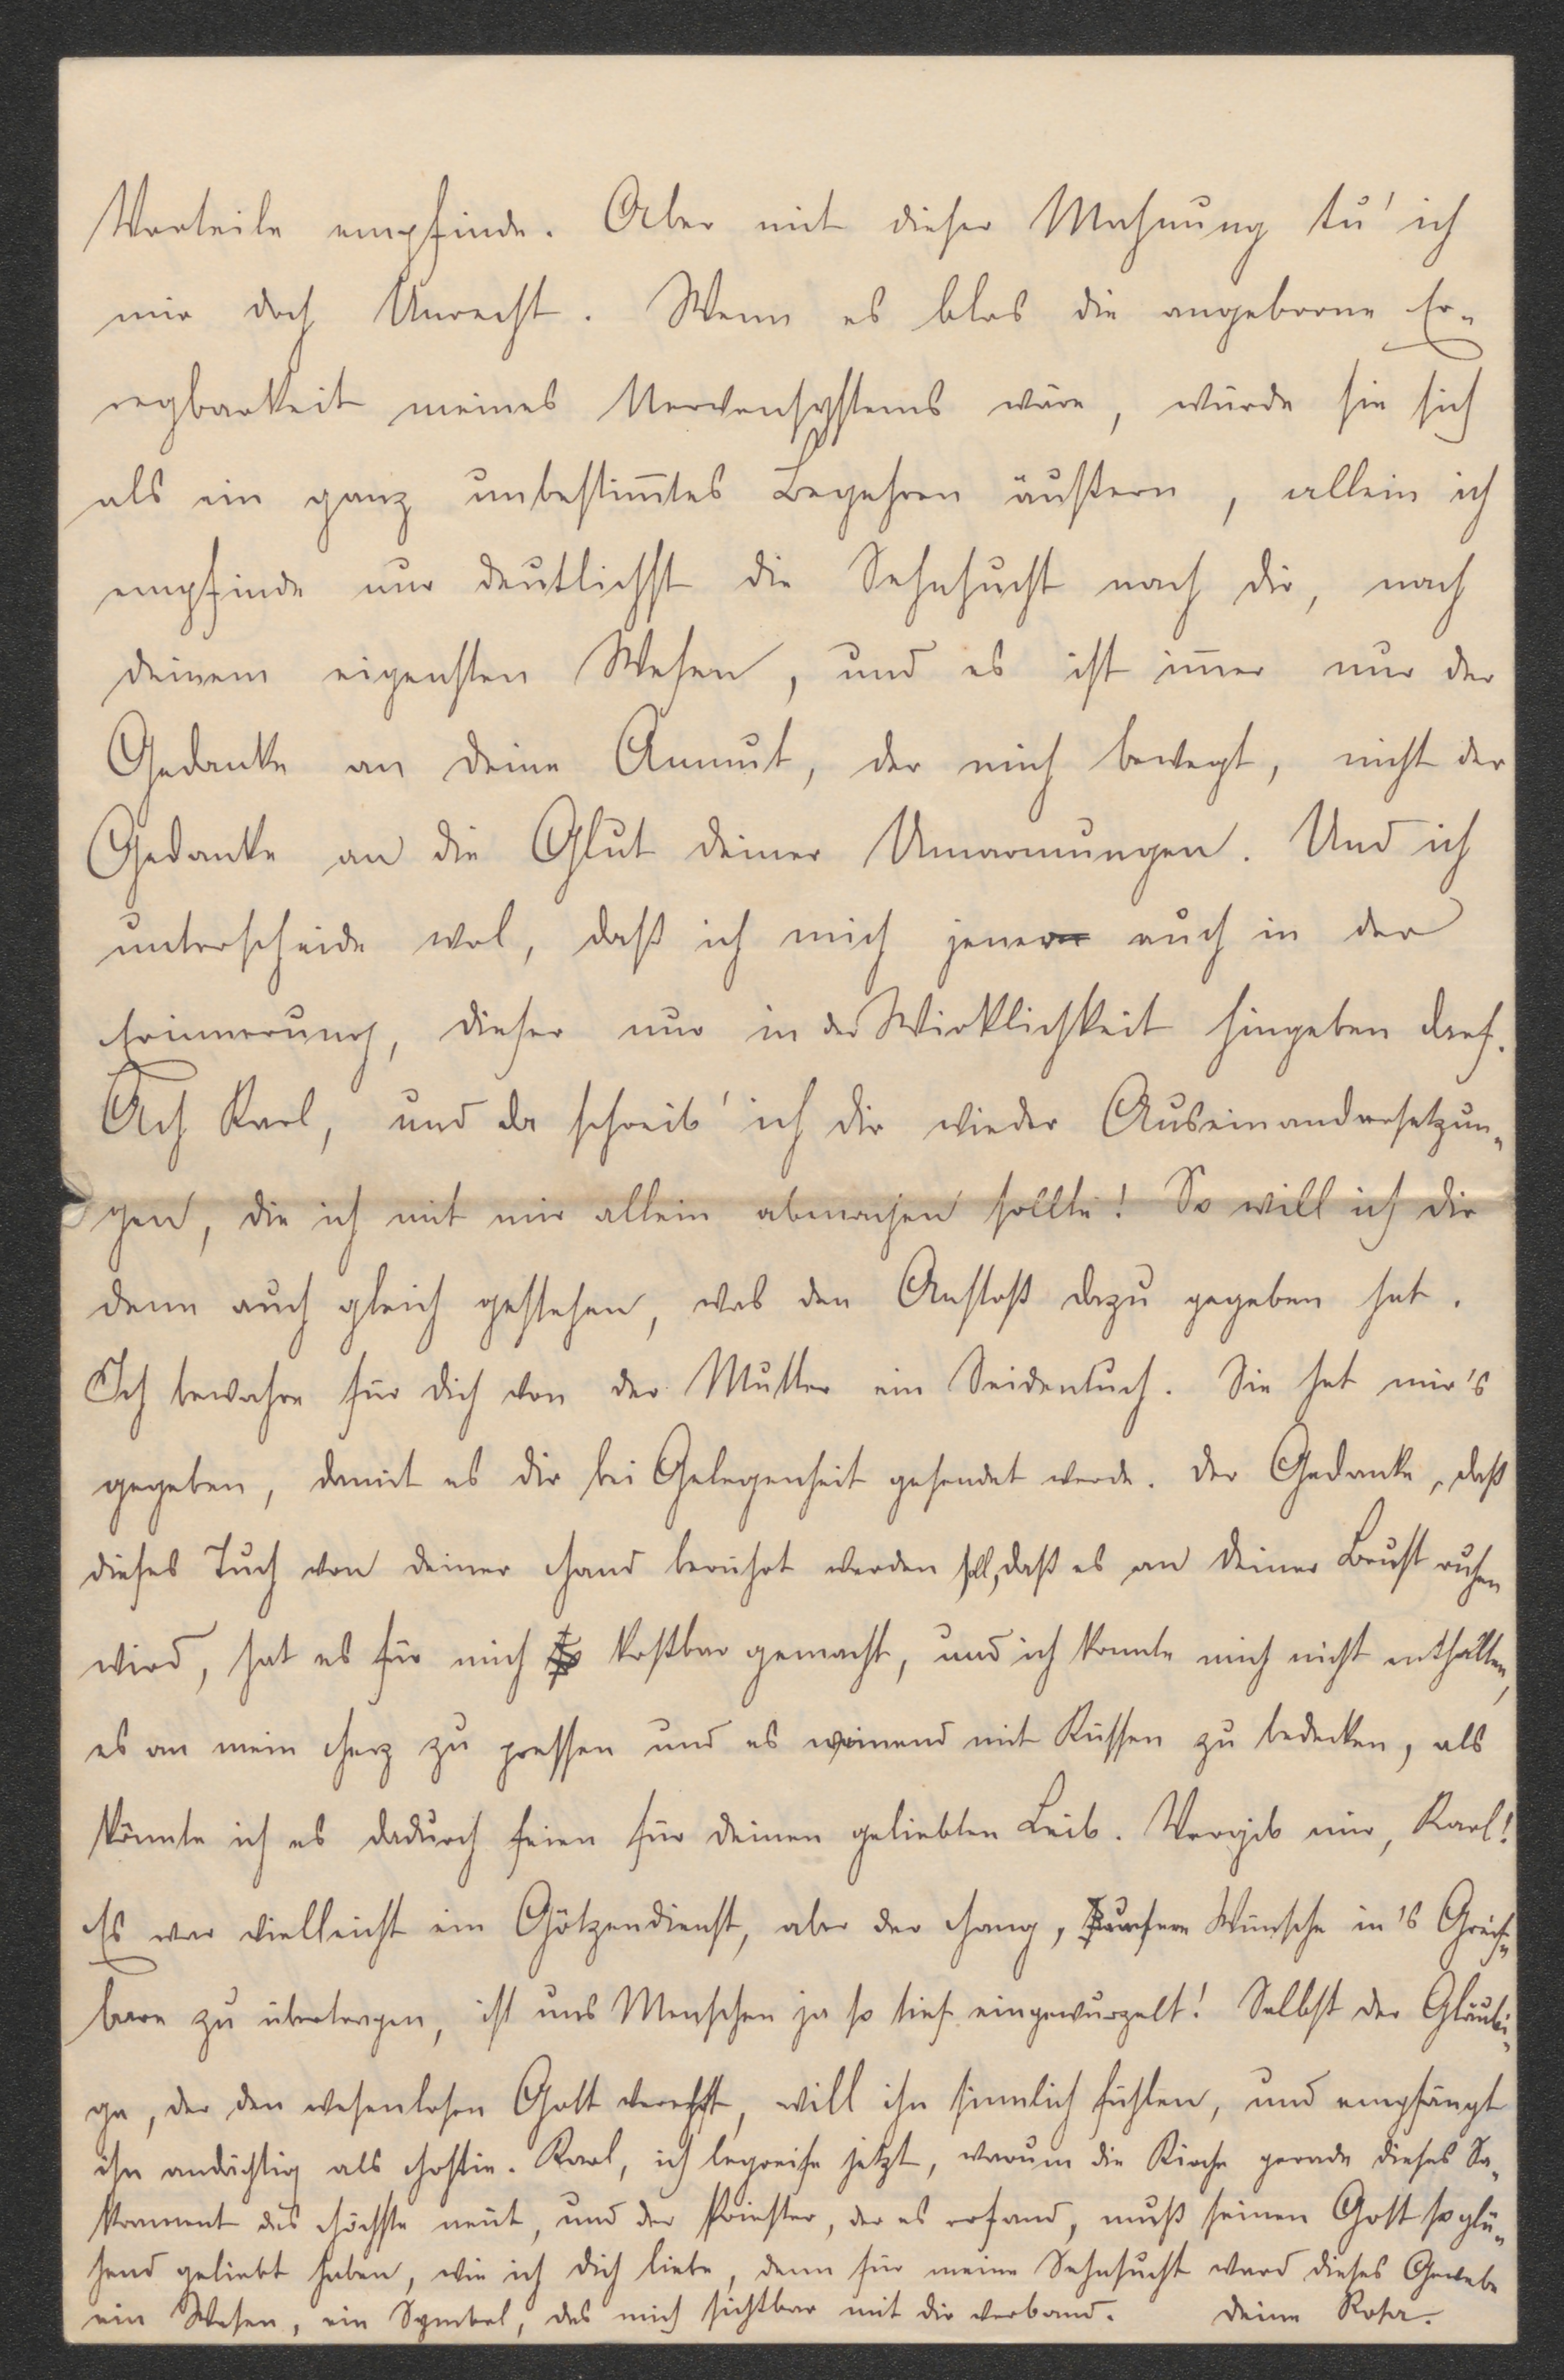 Vorteile empfinde. Aber mit dieser Mahnung tu' ich
mir doch Unrecht. Wenn es blos die angeborne Er-
regbarkeit meines Nervensystems wäre, würde sie sich
als ein ganz unbestim̅tes Begehren äußern, allein ich
empfinde nur deutlichst die Sehnsucht nach dir, nach
deinem eigensten Wesen, und es ist im̅er nur der
Gedanke an deine Anmut, der mich bewegt, nicht der
Gedanke an die Glut deiner Umarmungen. Und ich
unterscheide wol, daß ich mich jener auch in der
Erinnerung, dieser nur in der Wirklichkeit hingeben darf.
Ach Karl, und da schreib' ich dir wieder Auseinandersetzun-
gen, die ich mit mir allein abmachen sollte! So will ich dir
denn auch gleich gestehen, was den Anstoß dazu gegeben hat.
Ich bewahre für dich von der Mutter ein Seidentuch. Sie hat mir's
gegeben, damit es dir bei Gelegenheit gesendet werde. Der Gedanke, daß
dieses Tuch von deiner Hand berührt werden soll, daß es an deiner Brust ruhen
wird, hat es für mich kostbar gemacht, und ich konnte mich nicht enthalten,
es an mein Herz zu pressen und es weinend mit Küssen zu bedecken, als
könnte ich es dadurch feien für deinen geliebten Leib. Vergib mir, Karl!
Es war vielleicht ein Götzendienst, aber der Hang, unsere Wünsche in's Greif-
bare zu übertragen, ist uns Menschen ja so tief eingewurzelt! Selbst der Gläubi-
ge, der den wesenlosen Gott verehrt, will ihn sinnlich fühlen, und empfängt
ihn andächtig als Hostie. Karl, ich begreife jetzt, warum die Kirche gerade dieses Sa-
krament das Höchste nennt, und der Priester, der es erfand, muß seinen Gott so glü-
hend geliebt haben, wie ich dich liebe, denn für meine Sehnsucht ward dieses Gewebe
ein Wesen, ein Symbol, das mich sichtbar mit dir verband. Deine Rosa.